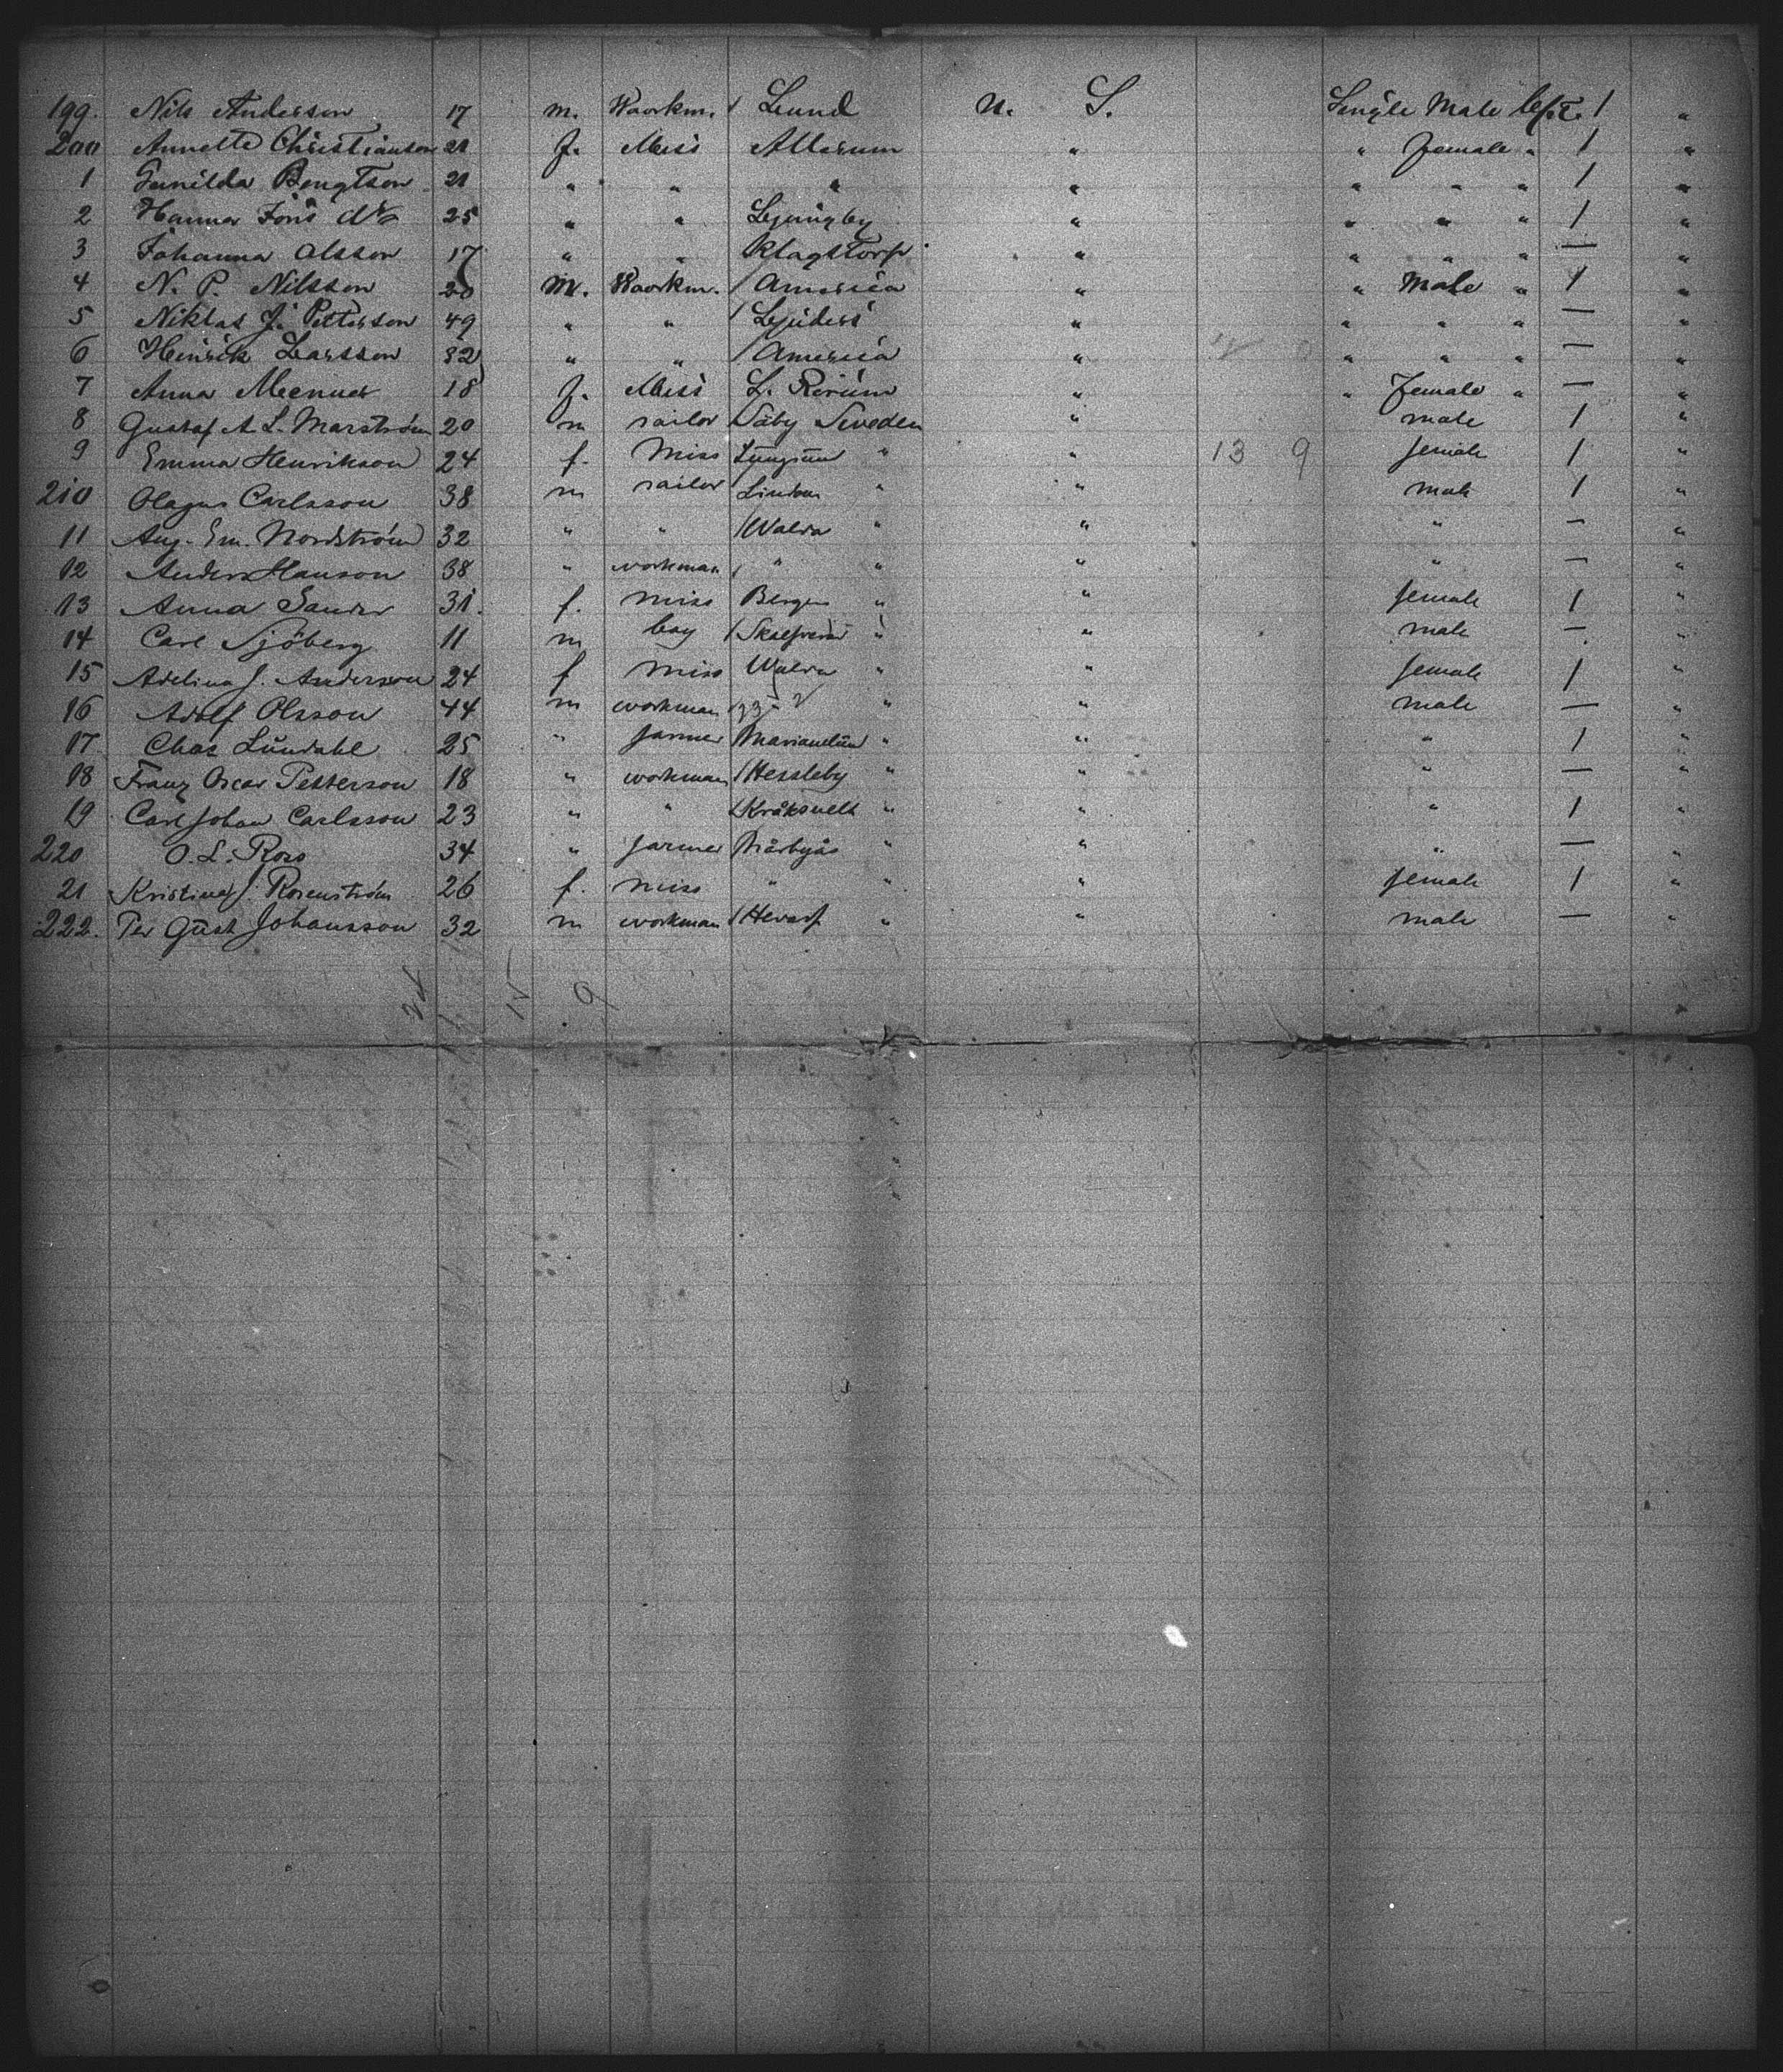 199. Nils Anderson 17 m. Waorkm. / Lund U. S. Single Male Cpt. 1 "
200 Annette Christianson 21 f. Miss Allerum " " Female " 1 "
1 Gunilda Bengtson 21 " " " " " " " 1 "
2 Hanna Föns dtr 25 " " Ljungby " " " " 1 "
3 Johanna Olsson 17 " " Klagstorp " " " " — "
4 N. P. Nilsson 20 m. Waorkm. / America " " Male " 1 "
5 Niklas J. Petterson 49 " " / " " " " — "
6 Heinrik Larsson 32 " " / America " " " " — "
7 Anna 18 f. Miss L. Rörum " " Female " — "
8 Gustaf A L. Marström 20 m sailor Säby Sweden " male 1 "
9 Emma Henrikson 24 f. Miss " " 13 9 female 1 "
210 Olagus Carlsson 38 m sailor / Lindom " " male 1 "
11 Aug. Em. Nordström 32 " " / Walda " " " — "
12 Anders Hanson 38 " workman / " " " " — "
13 Anna Sander 31. f. miss Bergen " " female 1 "
14 Carl Sjöberg 11 m boy / " " male — "
15 Adelina J. Anderson 24 f miss Walda " " female 1 "
16 Adolf Olsson 44 m workman " " male — "
17 Chas Lundahl 25 " farmer Mariannelun " " " 1 "
18 Franz Oscar Petterson 18 " workman / Hessleby " " " — "
19 Carl Johan Carlsson 23 " " / Kråksuelt " " " 1 "
220 O. L. Roos 34 " farmer Mårbyås " " " — "
21 Kristina J. Rosenström 26 f. miss " " " female 1 "
222. Per Gust Johansson 32 m workman / " " male — "
9